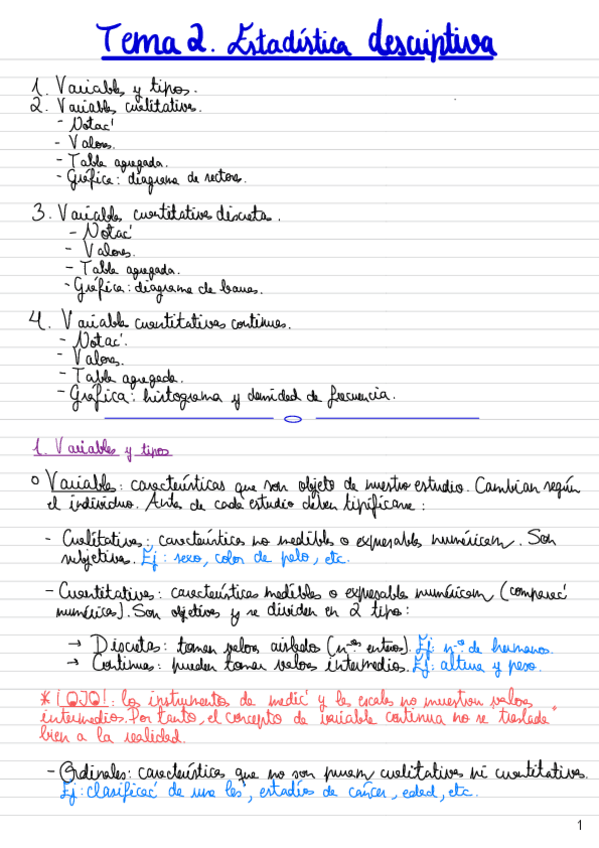 Tema 2. Estadística descriptiva
1. Variables y tipos.
2. Variables cualitativas.
- Notac'
- Valores.
- Tabla agregada.
- Gráfica: diagrama de sectores.
3. Variables cuantitativas discretas.
- Notac'
- Valores.
- Tabla agregada.
- Gráfica: diagrama de barras.
4. Variables cuantitativas continuas.
- Notac'.
- Valores.
- Tabla agregada.
- Gráfica: histograma y densidad de frecuencia.
1. Variables y tipos
o Variable: características que son objeto de nuestro estudio. Cambian según
el individuo. Antes de cada estudio deben tipificarse:
- Cualitativas: características no medibles o expresables numéricam. Son
subjetivas. Ej: sexo, color de pelo, etc.
- Cuantitativas: características medibles o expresables numéricam (comparac'
numéricas). Son objetivas y se dividen en 2 tipos:
→ Discretas: toman valores aislados (nºs enteros). Ej: nº de hermanos.
→ Continuas: pueden tomar valores intermedios. Ej: altura y peso.
* ¡OJO!: los instrumentos de medic' y las escalas no muestran valores
intermedios. Por tanto, el concepto de variable continua no se traslada
bien a la realidad.
- Ordinales: características que no son puram cualitativas ni cuantitativas.
Ej: clasificac' de una les', estadíos de cáncer, edad, etc.
1